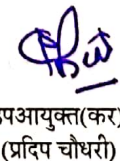 पआयुक्त(कर)
(प्रदिप चौधरी)